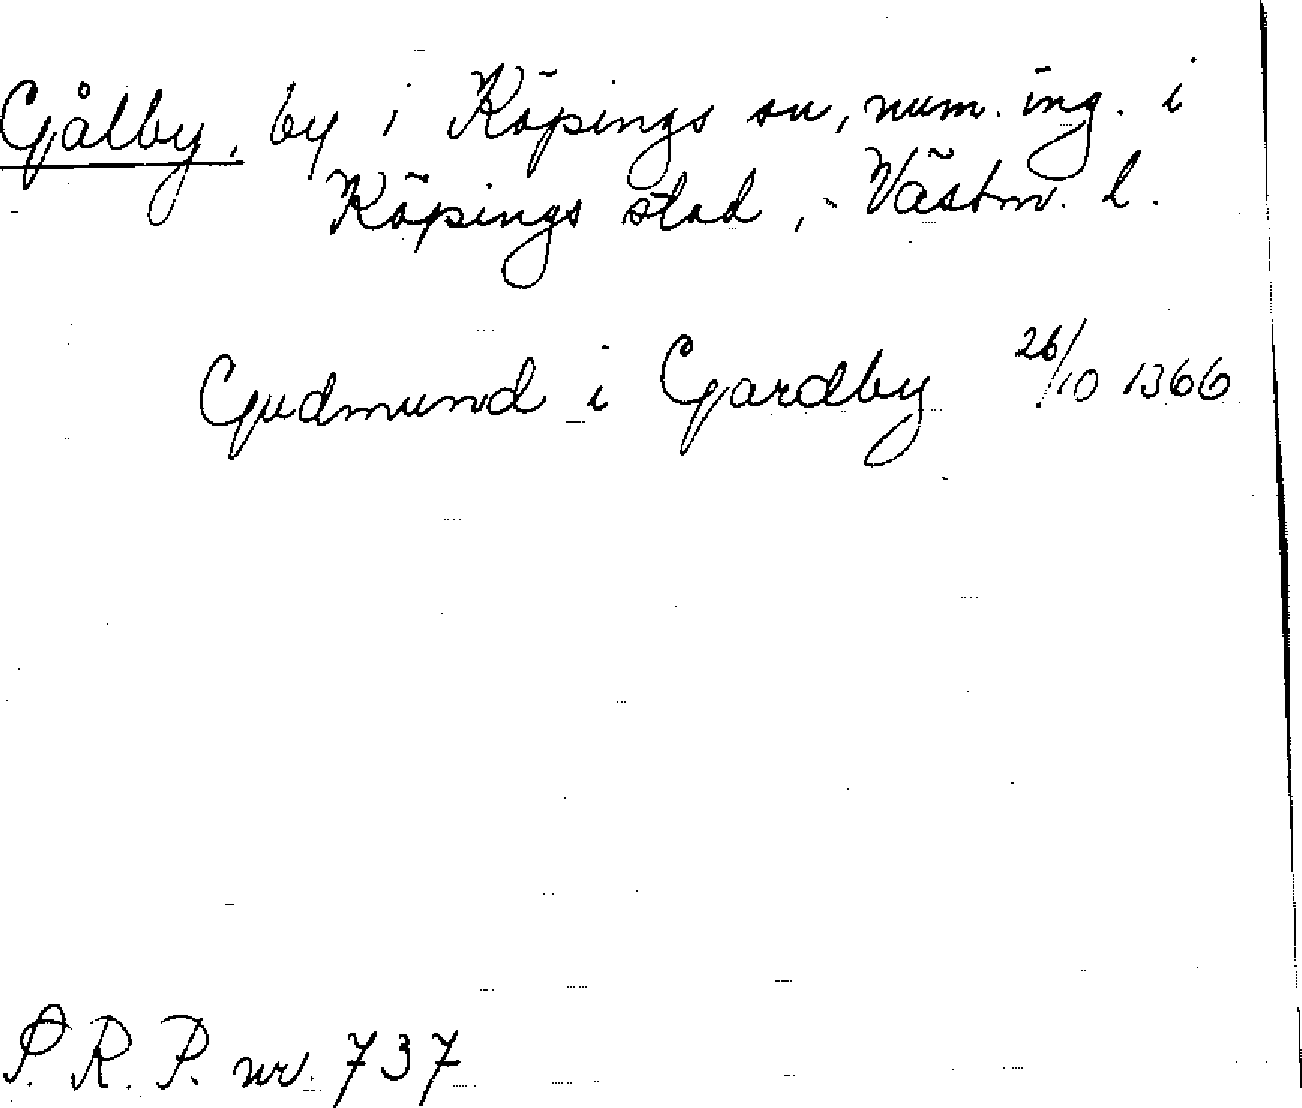 Gålby, by i Köpings sn, num. ing. i
Köpings stad, Västm. l.
Gudmund i Gardby 26/10 1366
S. R. P. nr. 737